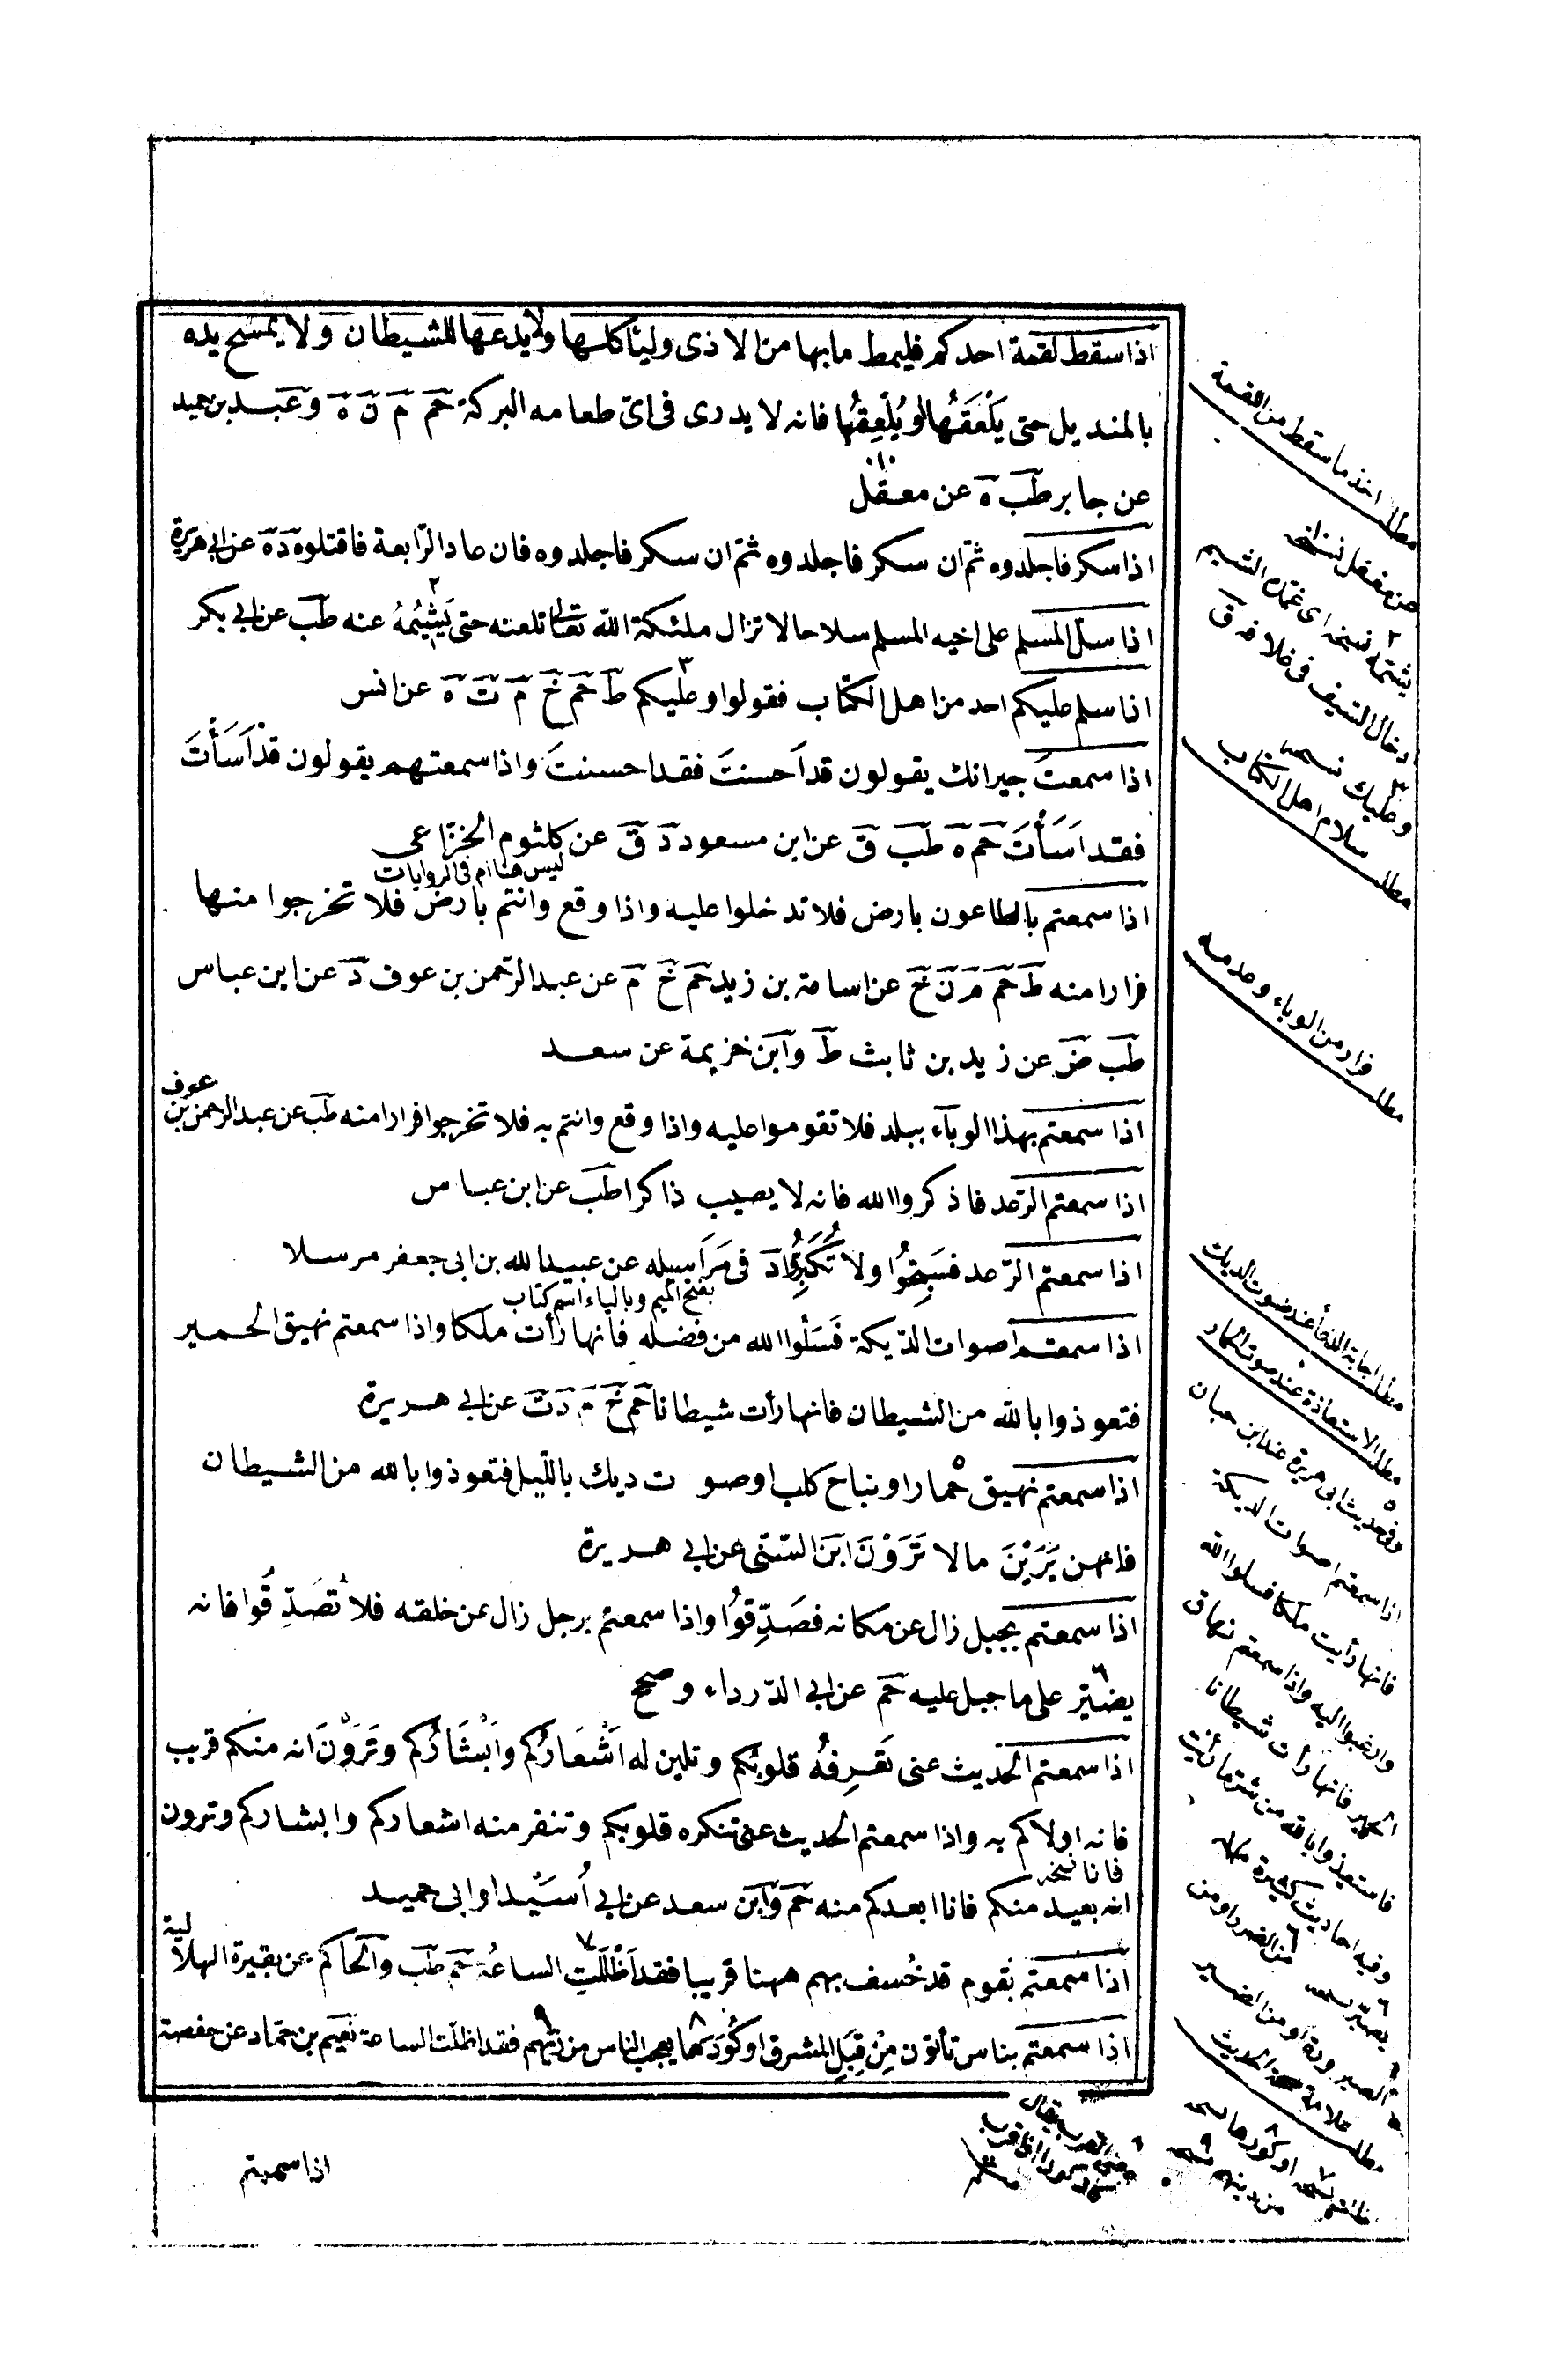 اذا سقط لقمة احدكم فليمط ما بها من الاذى وليأكلها ولا يدعها للشيطان ولا يمسح يده
بالمنديل حتى يَلْعَقَهَا او يُلْعِقَهَا فانه لا يدرى فى اىّ طعامه البركة حَم مَ نَ هَ وعَبد بن حميد
عن جابر طَب هَ عن معقل
اذا سكر فاجلدوه ثمّ ان سكر فاجلدوه ثمّ ان سكر فاجلدوه فان عاد الرّابعة فاقتلوه دَ هَ عن ابى هريرة
اذا سلّ المسلم على اخيه المسلم سلاحا لا تزال ملئكة الله تعالى تلعنه حتى يَشِيْمَهُ عنه طَب عن ابى بكر
اذا سلم عليكم احد من اهل الكتاب فقولوا وعليكم طَ حَم خَ مَ تَ هَ عن انس
اذا سمعتَ جيرانك يقولون قد اَحسنتَ فقد احسنتَ واذا سمعتهم يقولون قد اَسَأْتَ
فقد اَسَأْتَ حَم هَ طَب قَ عن ابن مسعود دَ قَ عن كلثوم الخزاعى
ليس هنا ام فى الروايات
اذا سمعتم بالطاعون بارض فلا تدخلوا عليه واذا وقع وانتم بارض فلا تخرجوا منها
فرارا منه طَ حَم مَ نَ خَ عن اسامة بن زيد حَم خَ مَ عن عبد الرّحمن بن عوف دَ عن ابن عباس
طَب ضَ عن زيد بن ثابث طَ وَابن خزيمة عن سعد
اذا سمعتم بهذا الوبآء ببلد فلا تقوموا عليه واذا وقع وانتم به فلا تخرجوا فرارا منه طَب عن عبد الرحمن بن عوف
اذا سمعتم الرّعد فاذكروا الله فانه لا يصيب ذاكرا طَب عن ابن عباس
اذا سمعتم الرّعد فسَبِّحُوا ولا تُكَبِّرُوا دَ فى مَرَاسيله عن عبيد الله بن ابى جعفر مرسلا
بفتح الميم وبالياء اسم كتاب
اذا سمعتم اصوات الدّيكة فَسَلُوا الله من فضله فانها رأت ملكا واذا سمعتم نهيق الحمير
فتعوذوا بالله من الشيطان فانها رأت شيطانا حَم خَ مَ دَ تَ عن ابى هريرة
اذا سمعتم نهيق حمار او نباح كلب او صوت ديك بالليل فتعوذوا بالله من الشيطان
فانهن يَرَيْنَ ما لا تَرَوْنَ ابَن السّنّى عن ابى هريرة
اذا سمعتم بجبل زال عن مكانه فصَدِّقُوا واذا سمعتم برجل زال عن خلقه فلا تُصَدِّقُوا فانه
يصير على ما جبل عليه حَم عن ابى الدّرداء وصحح
اذا سمعتم الحديث عنى تَعْرِفُهُ قلوبكم وتلين له اَشْعَارُكم واَبْشَارُكم وتَرَوْنَ انه منكم قريب
فانه اولاكم به واذا سمعتم الحديث عنى تنكره قلوبكم وتنفر منه اشعاركم وابشاركم وترون
فانا نسخه
انه بعيد منكم فانا ابعدكم منه حَم وَابن سعد عن ابى اُسَيْد او ابى حميد
اذا سمعتم بقوم قد خُسف بهم ههنا قريبا فقد اَظَلَّتِ الساعُة حَم طَب والحاكم عن بقيرة الهلالية
اذا سمعتم بناس تأتون مِنْ قِبَلِ المشرق اوكُوَدَهَا يعجب الناس من زيّهم فقد اظلت الساعة نعيم بن حمّاد عن حفصة
اذا سمعتم
مطلب اخذ ما سقط من اللقمة
عن مغفل نسخه
يشتمه نسخه اى غمده الشيم
ادخال السيف فى غلافه ق
وعليك نسخه
مطلب سلام اهل الكتاب
مطلب فرار من الوباء وعدمه
مطلب اجابة الدعاء عند صوت الديك
مطلب الاستعاذة عند صوت الحمار
وفى حديث ابى هريرة عند ابن حبان
اذا سمعتم اصوات الديكة
فانها رأيت ملكا فسلوا الله
وارغبوا اليه واذا سمعتم نهاق
الحمير فانها رأت شيطانا
فاستعيذوا بالله من شر ما رأيت
وفيه احاديث كثيرة
يصير نسخه من الضر او من
مطلب علامة صحة الحديث
او كورها نسخه
من دينهم نسخه